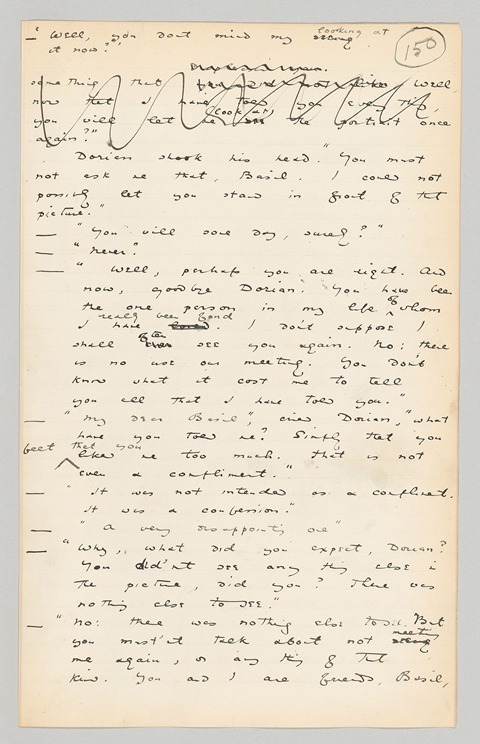 — "Well, you don't mind my seeing looking at
it now?"
150
something that                         Well,
now that I have told you every thing,
you will let me see look at the portrait once
again?"
Dorian shook his head. "You must
not ask me that, Basil. I could not
possibly let you stand in front of that
picture."
— "You will some day, surely?"
— "Never."
— "Well, perhaps you are right. And
now, goodbye Dorian. You have been
the one person in my life of whom
I have loved really been fond. I don't suppose I
shall ever often see you again. No: there
is no use our meeting. You don't
know what it cost me to tell
you all that I have told you."
— "My dear Basil", cried Dorian, "what
have you told me? Simply that you
felt that you
like me too much. That is not
even a compliment."
— "It was not intended as a compliment.
It was a confession."
— "A very disappointing one"
— "Why, what did you expect, Dorian?
You didn't see any thing else in
the picture, did you? There was
nothing else to see."
— "No: there was nothing else to see. But
you mustn't talk about not seeing meeting
me again, or any thing of that
kind. You and I are friends, Basil,